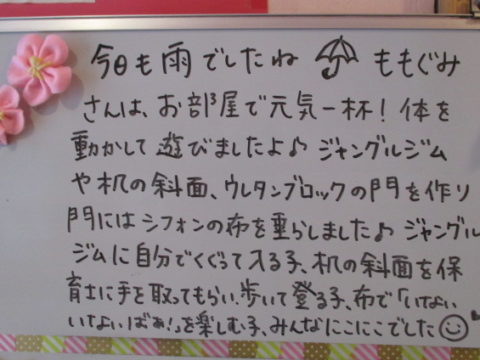 今日も雨でしたね ☂ ももぐみ
さんは、お部屋で元気一杯！体を
動かして遊びましたよ♪ ジャングルジム
や机の斜面、ウレタンブロックの門を作り
門にはシフォンの布を垂らしました♪ ジャングル
ジムに自分でくぐって入る子、机の斜面を保
育士に手を取ってもらい、歩いて登る子、布で「いないい
いないばぁ！」を楽しむ子、みんなにこにこでした☺